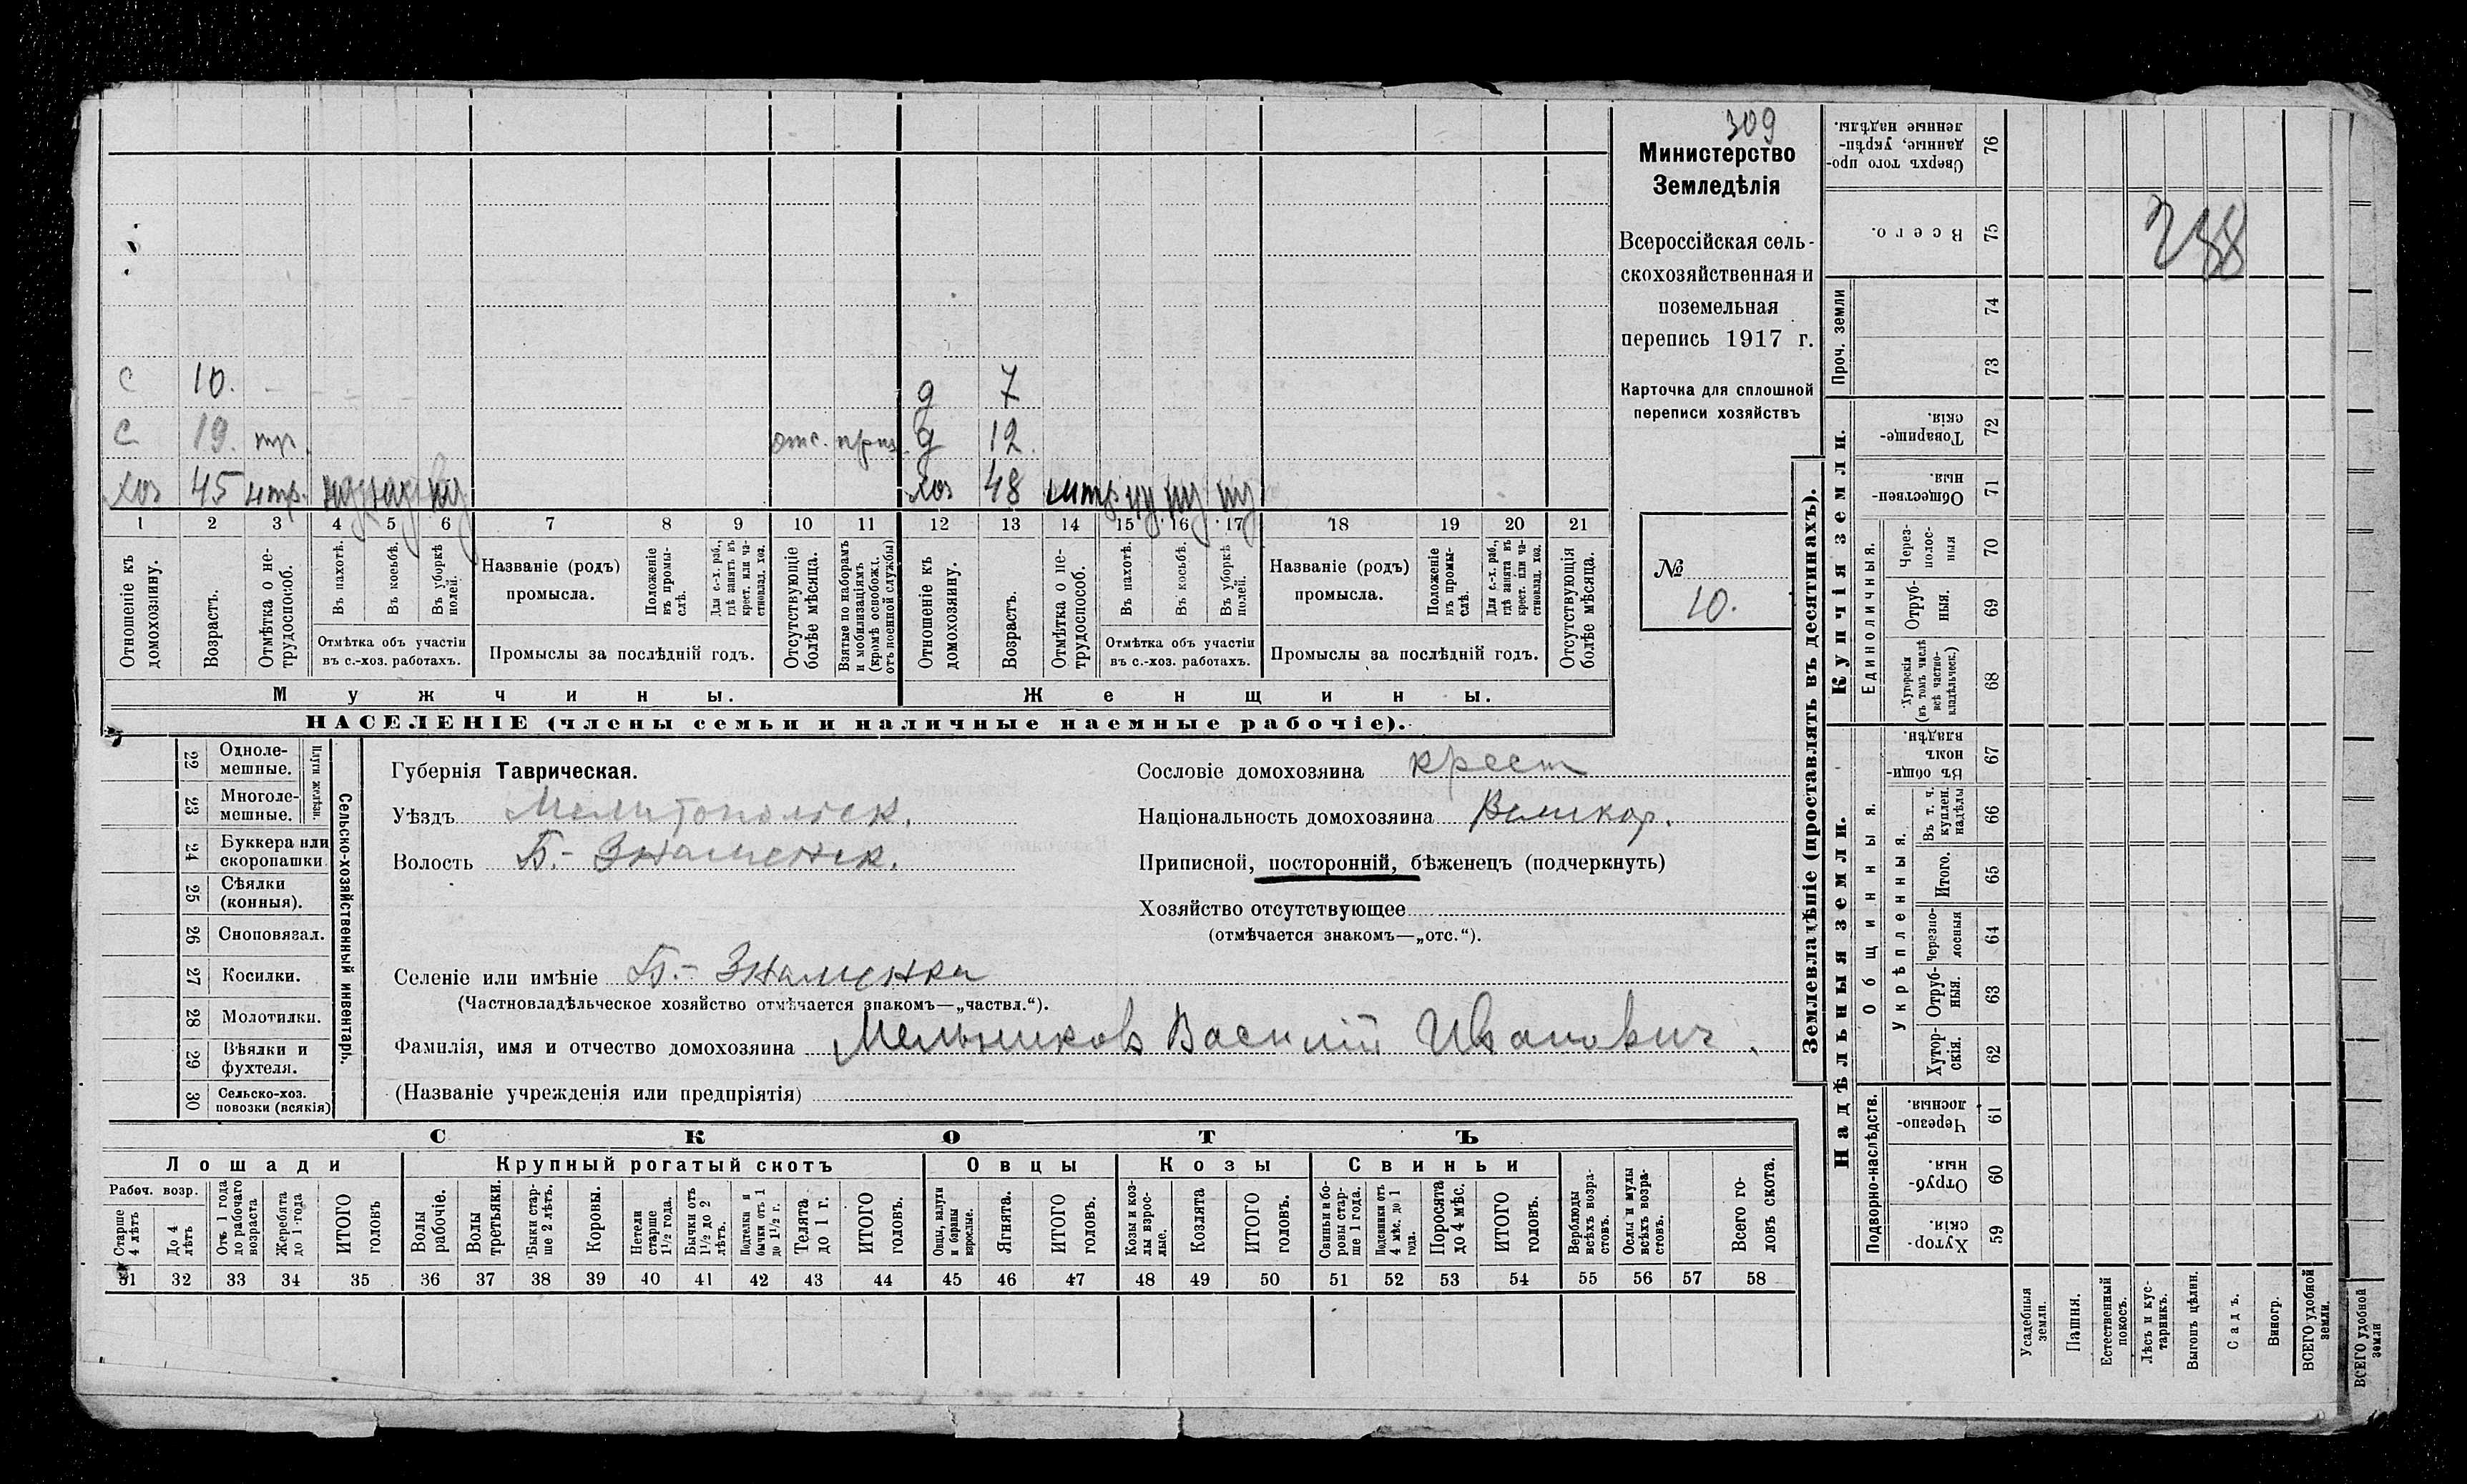 309
Министерство
Земледѣлія
Всероссійская сель-
скохозяйственная и
поземельная
перепись 1917 г.
Карточка для сплошной
переписи хозяйствъ
№
10.
с 10. д 7
с 19. тр. отс. приз. д 12.
хоз 45 хоз 48
1 2 3 4 5 6 7 8 9 10 11 12 13 14 15 16 17 18 19 20 21
Отношеніе къ домохозяину.
Возрастъ.
Отмѣтка о не-трудоспособ.
Въ пахотѣ.
Въ косьбѣ.
Въ уборкѣ полей.
Отмѣтка объ участіи
въ с.-хоз. работахъ.
Названіе (родъ)
промысла.
Положеніе въ промы-слѣ.
Для с.-х. раб., гдѣ занятъ въ крест. или ча-стновлад. хоз.
Промыслы за послѣдній годъ.
Отсутствующіе болѣе мѣсяца.
Взятые по наборамъ и мобилизаціямъ (кромѣ освобожд. отъ военной службы)
Отношеніе къ домохозяину.
Возрастъ.
Отмѣтка о не-трудоспособ.
Въ пахотѣ.
Въ косьбѣ.
Въ уборкѣ полей.
Отмѣтка объ участіи
въ с.-хоз. работахъ.
Названіе (родъ)
промысла.
Положеніе въ промы-слѣ.
Для с.-х. раб., гдѣ занята въ крест. или ча-стновлад. хоз.
Промыслы за послѣдній годъ.
Отсутствующія болѣе мѣсяца.
Мужчины. Женщины.
НАСЕЛЕНІЕ (члены семьи и наличные наемные рабочіе).
Сельско-хозяйственный инвентарь.
Плуги желѣзн.
22 Одноле-мешные.
23 Многоле-мешные.
24 Буккера или скоропашки
25 Сѣялки (конныя).
26 Сноповязал.
27 Косилки.
28 Молотилки.
29 Вѣялки и фухтеля.
30 Сельско-хоз. повозки (всякія)
Губернія Таврическая.
Уѣздъ Мелитопольск.
Волость Б.- Знаменск.
Сословіе домохозяина крест
Національность домохозяина Великор.
Приписной, посторонній, бѣженецъ (подчеркнуть)
Хозяйство отсутствующее
(отмѣчается знакомъ—„отс.“).
Селеніе или имѣніе Б.- Знаменка
(Частновладѣльческое хозяйство отмѣчается знакомъ—„частвл.“).
Фамилія, имя и отчество домохозяина Мельников Василій Иванович.
(Названіе учрежденія или предпріятія)
СКОТЪ
Лошади Крупный рогатый скотъ Овцы Козы Свиньи
Рабоч. возр.
Старше 4 лѣтъ
До 4 лѣтъ
Отъ 1 года до рабочаго возраста
Жеребята до 1 года
ИТОГО головъ
Волы рабочіе.
Волы третьяки.
Быки стар-ше 2 лѣтъ.
Коровы.
Нетели старше 1½ года.
Бычки отъ 1½ до 2 лѣтъ.
Подтелки и бычки отъ 1 до 1½ г.
Телята до 1 г.
ИТОГО головъ.
Овцы, валухи и бараны взрослые.
Ягнята.
ИТОГО головъ.
Козы и коз-лы взрос-лые.
Козлята
ИТОГО головъ.
Свиньи и бо-ровы стар-ше 1 года.
Подсвинки отъ 4 мѣс. до 1 года.
Поросята до 4 мѣс.
ИТОГО головъ.
Верблюды всѣхъ возра-стовъ.
Ослы и мулы всѣхъ возра-стовъ.
Всего го-ловъ скота.
31 32 33 34 35 36 37 38 39 40 41 42 43 44 45 46 47 48 49 50 51 52 53 54 55 56 57 58
Землевладѣніе (проставлять въ десятинахъ).
Купчія земли.
Надѣльныя земли.
Проч. земли
Единоличныя.
Общинныя.
Укрѣпленныя.
Подворно-наслѣдств.
Сверхъ того про-данные, укрѣп-ленные надѣлы. 76
Всего. 75
74
73
Товарище-скія. 72
Обществен-ныя. 71
Через-полос-ныя 70
Отруб-ныя. 69
Хуторскія (въ томъ числѣ всѣ частно-владѣльческ.) 68
Въ общин-номъ владѣн. 67
Въ т. ч. куплен. надѣлы 66
Итого. 65
Черезпо-лосныя 64
Отруб-ныя. 63
Хутор-скія. 62
Черезпо-лосныя. 61
Отруб-ныя. 60
Хутор-скія. 59
Усадебныя земли.
Пашня.
Естественный покосъ.
Лѣсъ и кус-тарникъ.
Выгонъ цѣлин.
Садъ.
Виногр.
ВСЕГО удобной земли.
ВСЕГО удобной земли